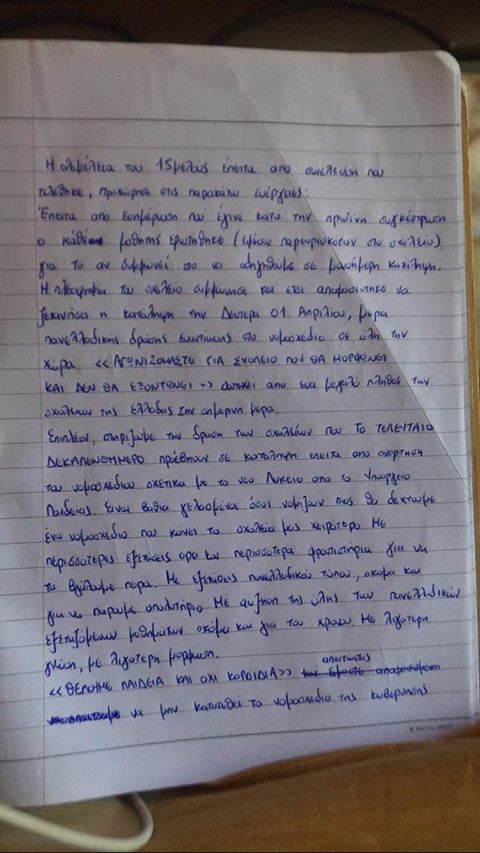 Η ολομέλεια του 15μελους έπειτα απο συνέλευση που
τελέθηκε, προχώρησε στις παρακάτω ενέργειες:
Έπειτα απο ενημέρωση που έγινε κατα την πρωϊνή συγκέντρωση
ο κάθε μαθητης ερωτήθηκε (εφόσον παρευρισκοταν στο σχολείο)
για το αν συμφωνεί στο να οδηγηθούμε σε μονοήμερη κατάληψη.
Η πλειοψηφια του σχολείο συμφωνησε και ετσι αποφασιστηκε να
ξεκινήσει η κατάληψη την Δευτερα 01 Απριλίου, μερα
πανελλαδικης δρασης εναντιωσης στο νομοσχέδιο σε όλη την
χώρα. <<ΑΓΩΝΙΖΟΜΑΣΤΕ ΓΙΑ ΣΧΟΛΕΙΟ ΠΟΥ ΘΑ ΜΟΡΦΩΝΕΙ
ΚΑΙ ΔΕΝ ΘΑ ΕΞΟΝΤΩΝΕΙ>> αντηχεί απο ενα μεγαλο πληθος των
σχολειων της ελλαδας την σημερινη μερα.
Επιπλέον, στηρίζουμε την δραση των σχολείων που ΤΟ ΤΕΛΕΥΤΑΙΟ
ΔΕΚΑΠΕΝΘΗΜΕΡΟ πρέβησαν σε καταληψη επειτα απο αναρτηση
του νομοσχέδιου σχετικα με το νεο Λυκειο απο το Υπουργείο
Παιδειας. Ειναι βαθια γελασμένα όσοι νομίζουν πως θα δεχτουμε
ένα νομοσχέδιο που κάνει το σχολείο μας χειροτερο. Με
περισσότερες εξετάσεις αρα και περισσοτερα φροντιστήρια για να
τα βγάλουμε περα. Με εξετασεις πανελλαδικού τύπου, ακομα και
για να παρουμε απολυτήριο. Με αυξηση της ύλης των πανελλαδικών
εξεταζόμενων μαθημάτων ακόμα και για του χρονου. Με λιγοτερη
γνώση, με λιγοτερη μορφωση.
<<ΘΕΛΟΥΜΕ ΠΑΙΔΕΙΑ ΚΑΙ ΟΧΙ ΚΟΡΟΙΔΙΑ>> απαιτωντας
να μην κατατεθεί το νομοσχέδιο της κυβερνησης